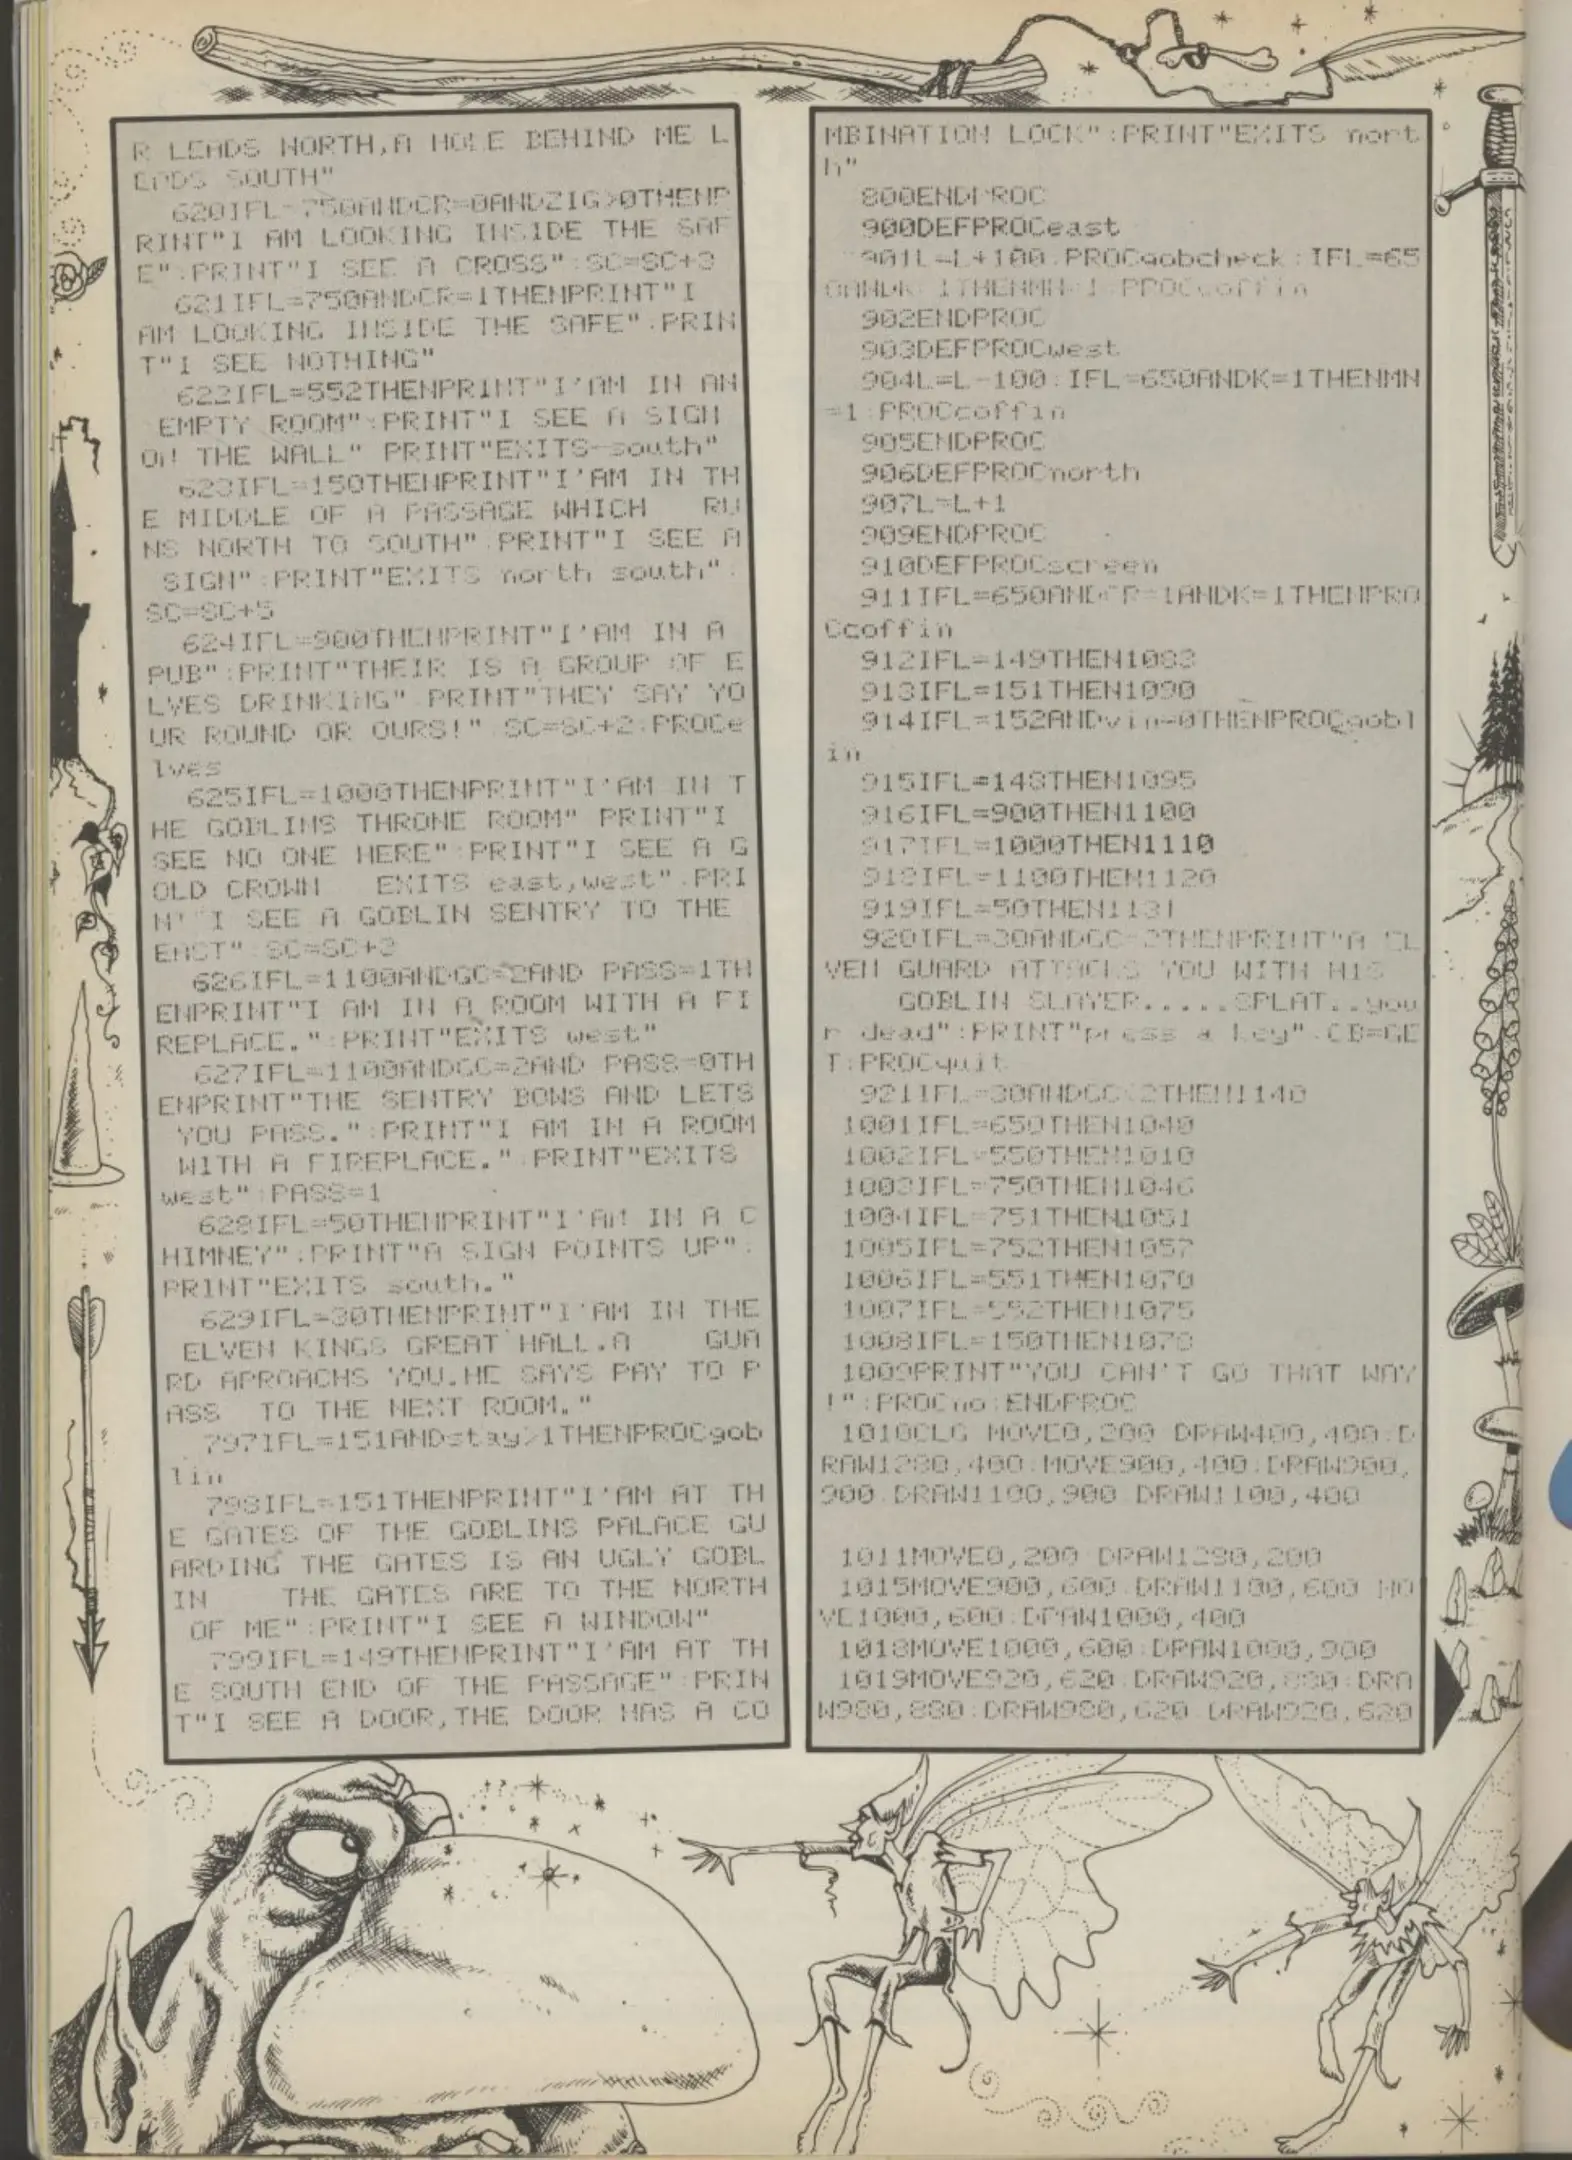 R LEADS NORTH,A HOLE BEHIND ME L
EADS SOUTH"
620IFL=750ANDCR=0ANDZIG>0THENP
RINT"I AM LOOKING INSIDE THE SAF
E":PRINT"I SEE A CROSS":SC=SC+3
621IFL=750ANDCR=1THENPRINT"I
AM LOOKING INSIDE THE SAFE":PRIN
T"I SEE NOTHING"
622IFL=552THENPRINT"I'AM IN AN
EMPTY ROOM":PRINT"I SEE A SIGN
ON THE WALL":PRINT"EXITS-south"
623IFL=150THENPRINT"I'AM IN TH
E MIDDLE OF A PASSAGE WHICH   RU
NS NORTH TO SOUTH":PRINT"I SEE A
SIGN":PRINT"EXITS north south":
SC=SC+5
624IFL=900THENPRINT"I'AM IN A
PUB":PRINT"THEIR IS A GROUP OF E
LVES DRINKING":PRINT"THEY SAY YO
UR ROUND OR OURS!":SC=SC+2:PROCe
lves
625IFL=1000THENPRINT"I'AM IN T
HE GOBLINS THRONE ROOM":PRINT"I
SEE NO ONE HERE":PRINT"I SEE A G
OLD CROWN   EXITS east,west":PRI
NT"I SEE A GOBLIN SENTRY TO THE
EAST":SC=SC+3
626IFL=1100ANDGC=2AND PASS=1TH
ENPRINT"I AM IN A ROOM WITH A FI
REPLACE.":PRINT"EXITS west"
627IFL=1100ANDGC=2AND PASS=0TH
ENPRINT"THE SENTRY BOWS AND LETS
YOU PASS.":PRINT"I AM IN A ROOM
WITH A FIREPLACE.":PRINT"EXITS
west":PASS=1
628IFL=50THENPRINT"I'AM IN A C
HIMNEY":PRINT"A SIGN POINTS UP":
PRINT"EXITS south."
629IFL=30THENPRINT"I'AM IN THE
ELVEN KINGS GREAT HALL.A     GUA
RD APROACHS YOU.HE SAYS PAY TO P
ASS  TO THE NEXT ROOM."
797IFL=151ANDstay>1THENPROCgob
lin
798IFL=151THENPRINT"I'AM AT TH
E GATES OF THE GOBLINS PALACE GU
ARDING THE GATES IS AN UGLY GOBL
IN    THE GATES ARE TO THE NORTH
OF ME":PRINT"I SEE A WINDOW"
799IFL=149THENPRINT"I'AM AT TH
E SOUTH END OF THE PASSAGE":PRIN
T"I SEE A DOOR,THE DOOR HAS A CO
MBINATION LOCK":PRINT"EXITS nort
h"
800ENDPROC
900DEFPROCeast
901L=L+100:PROCgobcheck:IFL=65
0ANDK=1THENMN=1:PROCcoffin
902ENDPROC
903DEFPROCwest
904L=L-100:IFL=650ANDK=1THENMN
=1:PROCcoffin
905ENDPROC
906DEFPROCnorth
907L=L+1
909ENDPROC
910DEFPROCscreen
911IFL=650ANDCR=1ANDK=1THENPRO
Ccoffin
912IFL=149THEN1083
913IFL=151THEN1090
914IFL=152ANDvin=0THENPROCgobl
in
915IFL=148THEN1095
916IFL=900THEN1100
917IFL=1000THEN1110
918IFL=1100THEN1120
919IFL=50THEN1131
920IFL=30ANDGC=2THENPRINT"A EL
VEN GUARD ATTACKS YOU WITH HIS
GOBLIN SLAYER.....SPLAT..you
r dead":PRINT"press a key":CB=GE
T:PROCquit
921IFL=30ANDGC<2THEN1140
1001IFL=650THEN1040
1002IFL=550THEN1010
1003IFL=750THEN1046
1004IFL=751THEN1051
1005IFL=752THEN1057
1006IFL=551THEN1070
1007IFL=552THEN1075
1008IFL=150THEN1078
1009PRINT"YOU CAN'T GO THAT WAY
!":PROCno:ENDPROC
1010CLG:MOVE0,200:DRAW400,400:D
RAW1280,400:MOVE900,400:DRAW900,
900:DRAW1100,900:DRAW1100,400
1011MOVE0,200:DRAW1280,200
1015MOVE900,600:DRAW1100,600:MO
VE1000,600:DRAW1000,400
1018MOVE1000,600:DRAW1000,900
1019MOVE920,620:DRAW920,880:DRA
W980,880:DRAW980,620:DRAW920,620